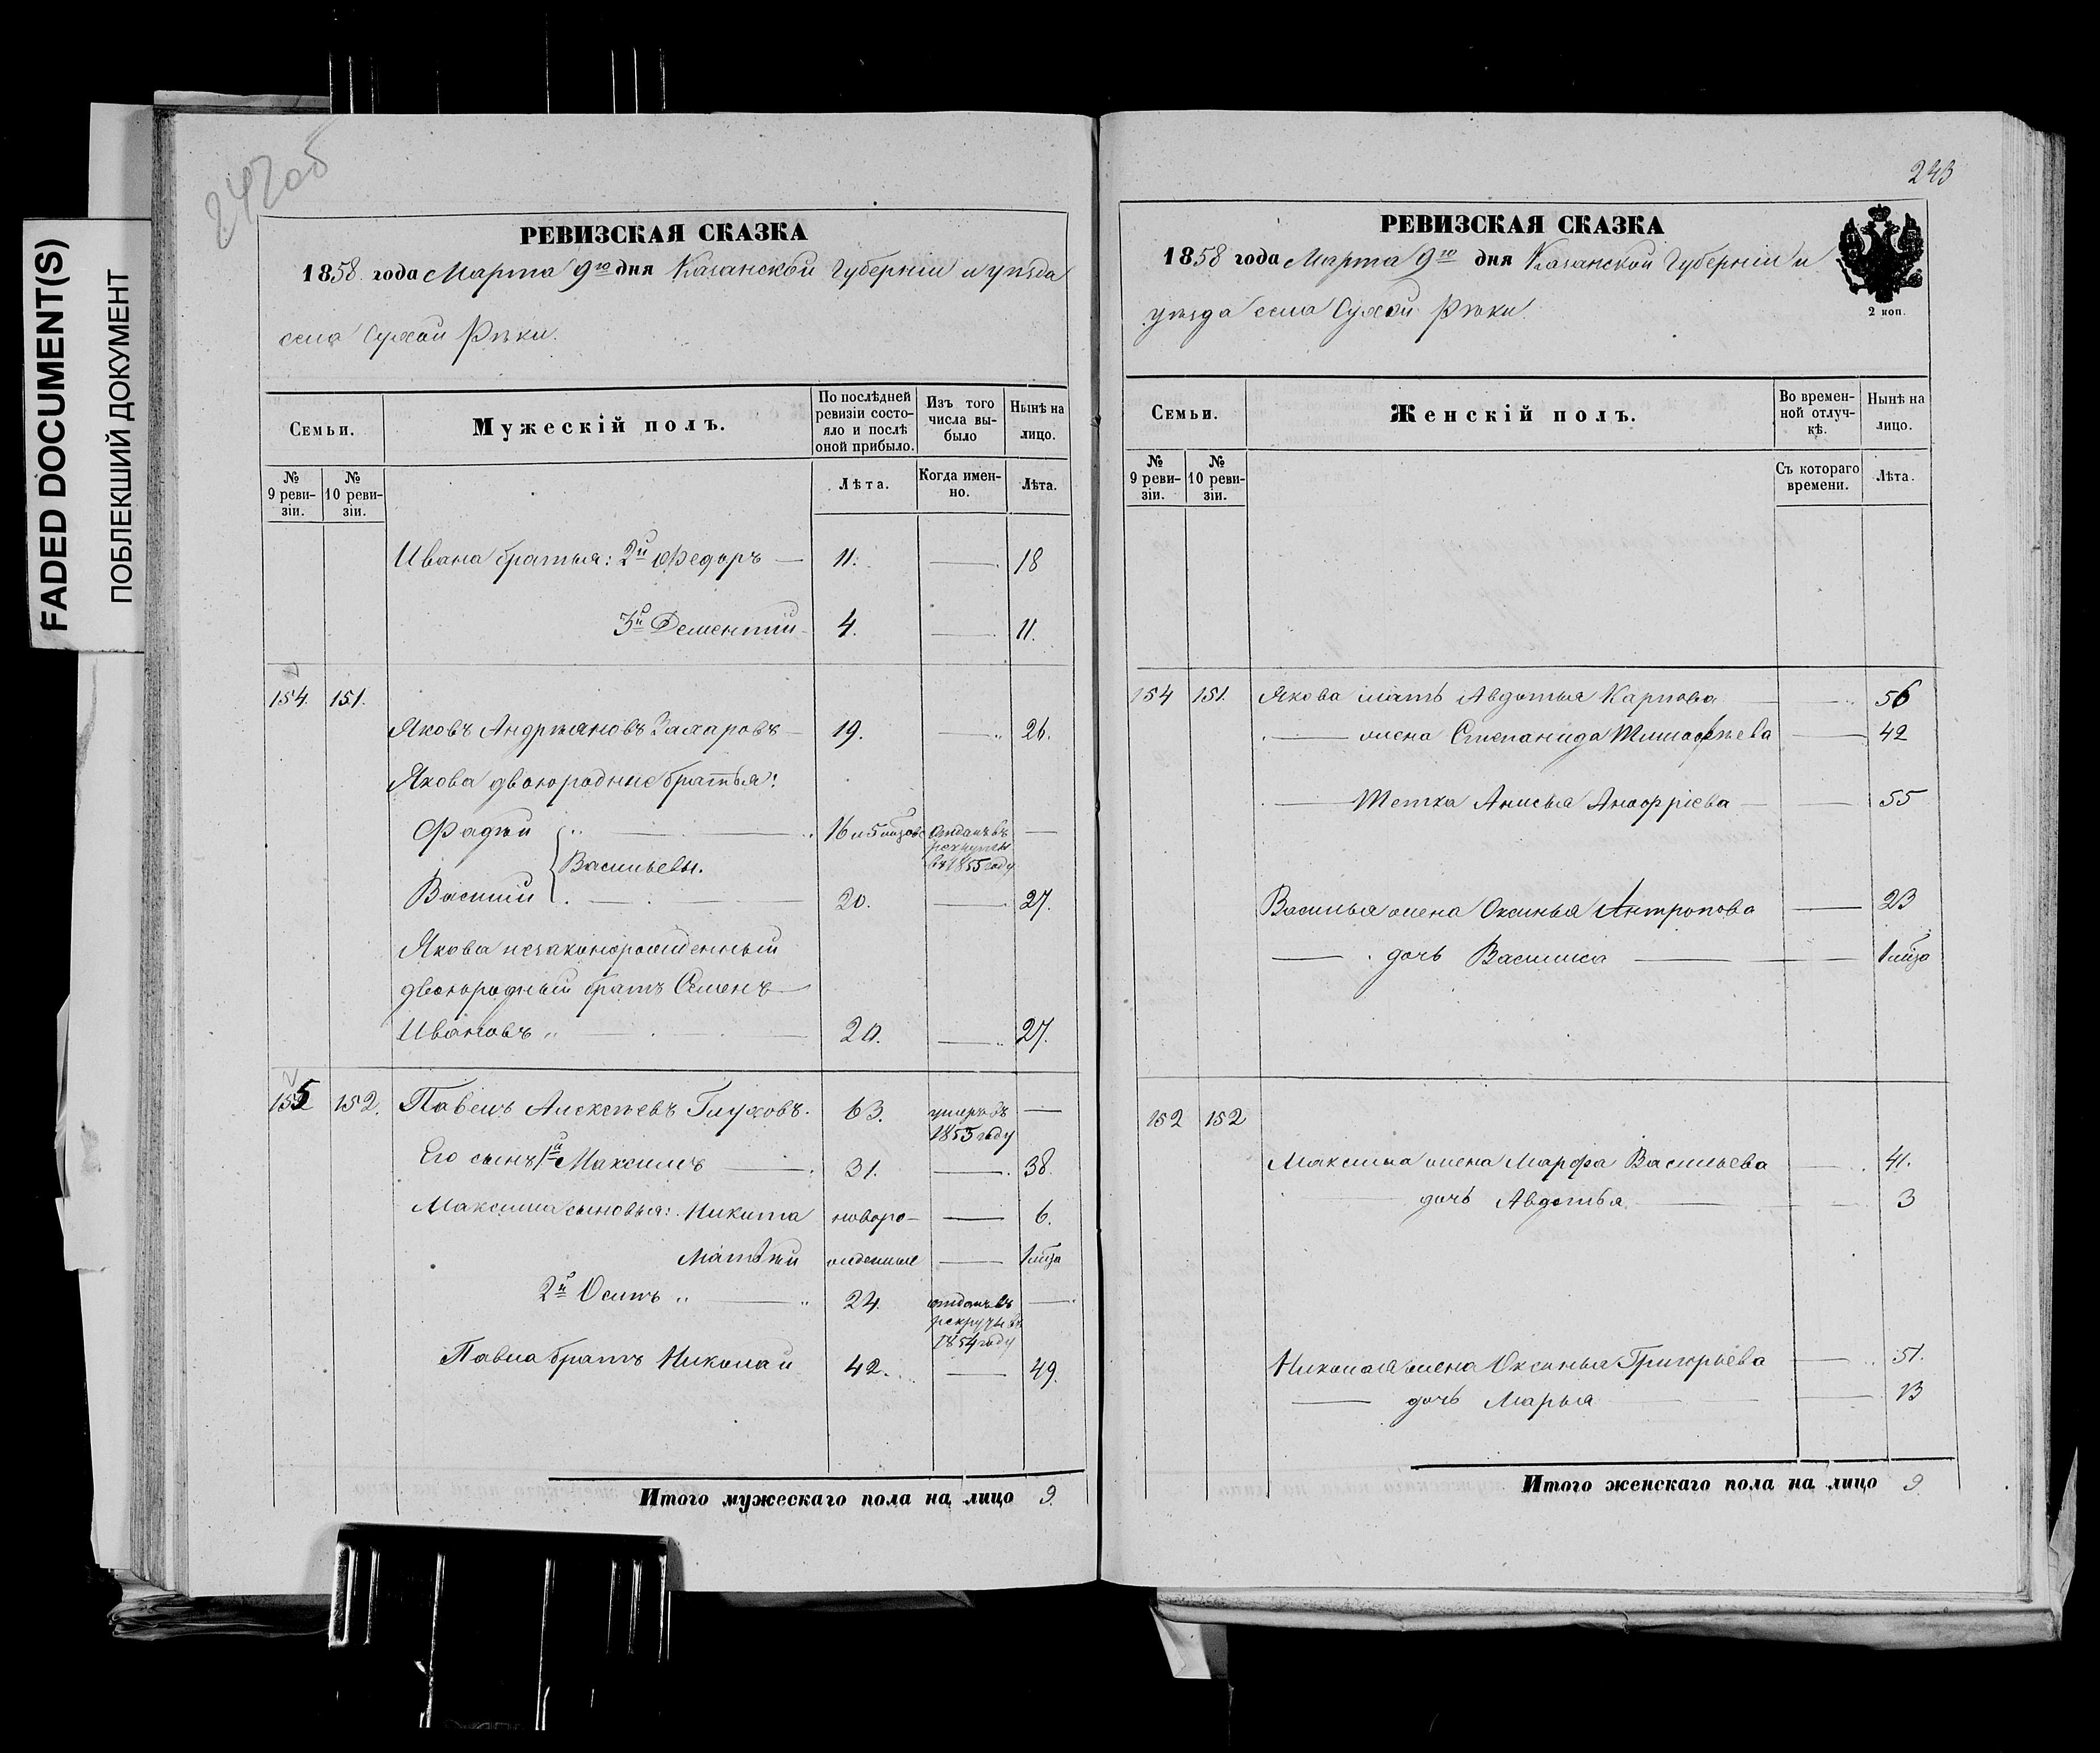 FADED DOCUMENT(S)
ПОБЛЕКШИЙ ДОКУМЕНТ
242об
РЕВИЗСКАЯ СКАЗКА
1858 года Марта 9го дня Казанской Губерніи и уѣзда
села Сухой Рѣки.
Семьи.
Мужескій полъ.
По послѣдней ревизіи состояло и послѣ оной прибыло.
Изъ того числа выбыло
Нынѣ на лицо.
№ 9 ревизіи.
№ 10 ревизіи.
Лѣта.
Когда именно.
Лѣта.
Ивана братья: 2й Федоръ — 11. — 18
3й Дементій — 4. — 11.
154. 151.
Яковъ Андрѣяновъ Захаровъ — 19. — 26.
Якова двоюродные братья:
Фадѣй 16 и 5 мѣсяц отданъ въ рекруты въ 1855 году —
Васильевы.
Василій 20. — 27.
Якова незаконорожденный
двоюродный братъ Семенъ
Ивановъ 20. — 27.
155 152. Павелъ Алексѣевъ Глуховъ. 63. умеръ въ 1853 году —
Его сынъ 1й Максимъ — 31. — 38.
Максима сыновья: Никита новоро- — 6.
Матвѣй жденные — 1 мѣся
2й Осипъ 24. отданъ въ рекруты въ 1854 году —
Павла братъ Николай 42. — 49.
Итого мужескаго пола на лицо 9.
243
РЕВИЗСКАЯ СКАЗКА
1858 года Марта 9го дня Казанской Губерніи и
уѣзда села Сухой Рѣки.
2 коп.
Семьи.
Женскій полъ.
Во временной отлучкѣ.
Нынѣ на лицо.
№ 9 ревизіи.
№ 10 ревизіи.
Съ котораго времени.
Лѣта.
154 151. Якова мать Авдотья Карпова — 56
— жена Степанида Тимофѣева — 42
— Тетка Анисья Анофріева — 55
Василья жена Оксинья Антропова — 23
— дочь Василиса — 1 мѣся
152 152
Максима жена Марфа Васильева — 41.
дочь Авдотья — 3
Николая жена Оксинья Григорьева — 51.
— дочь Марья — 13
Итого женскаго пола на лицо 9.